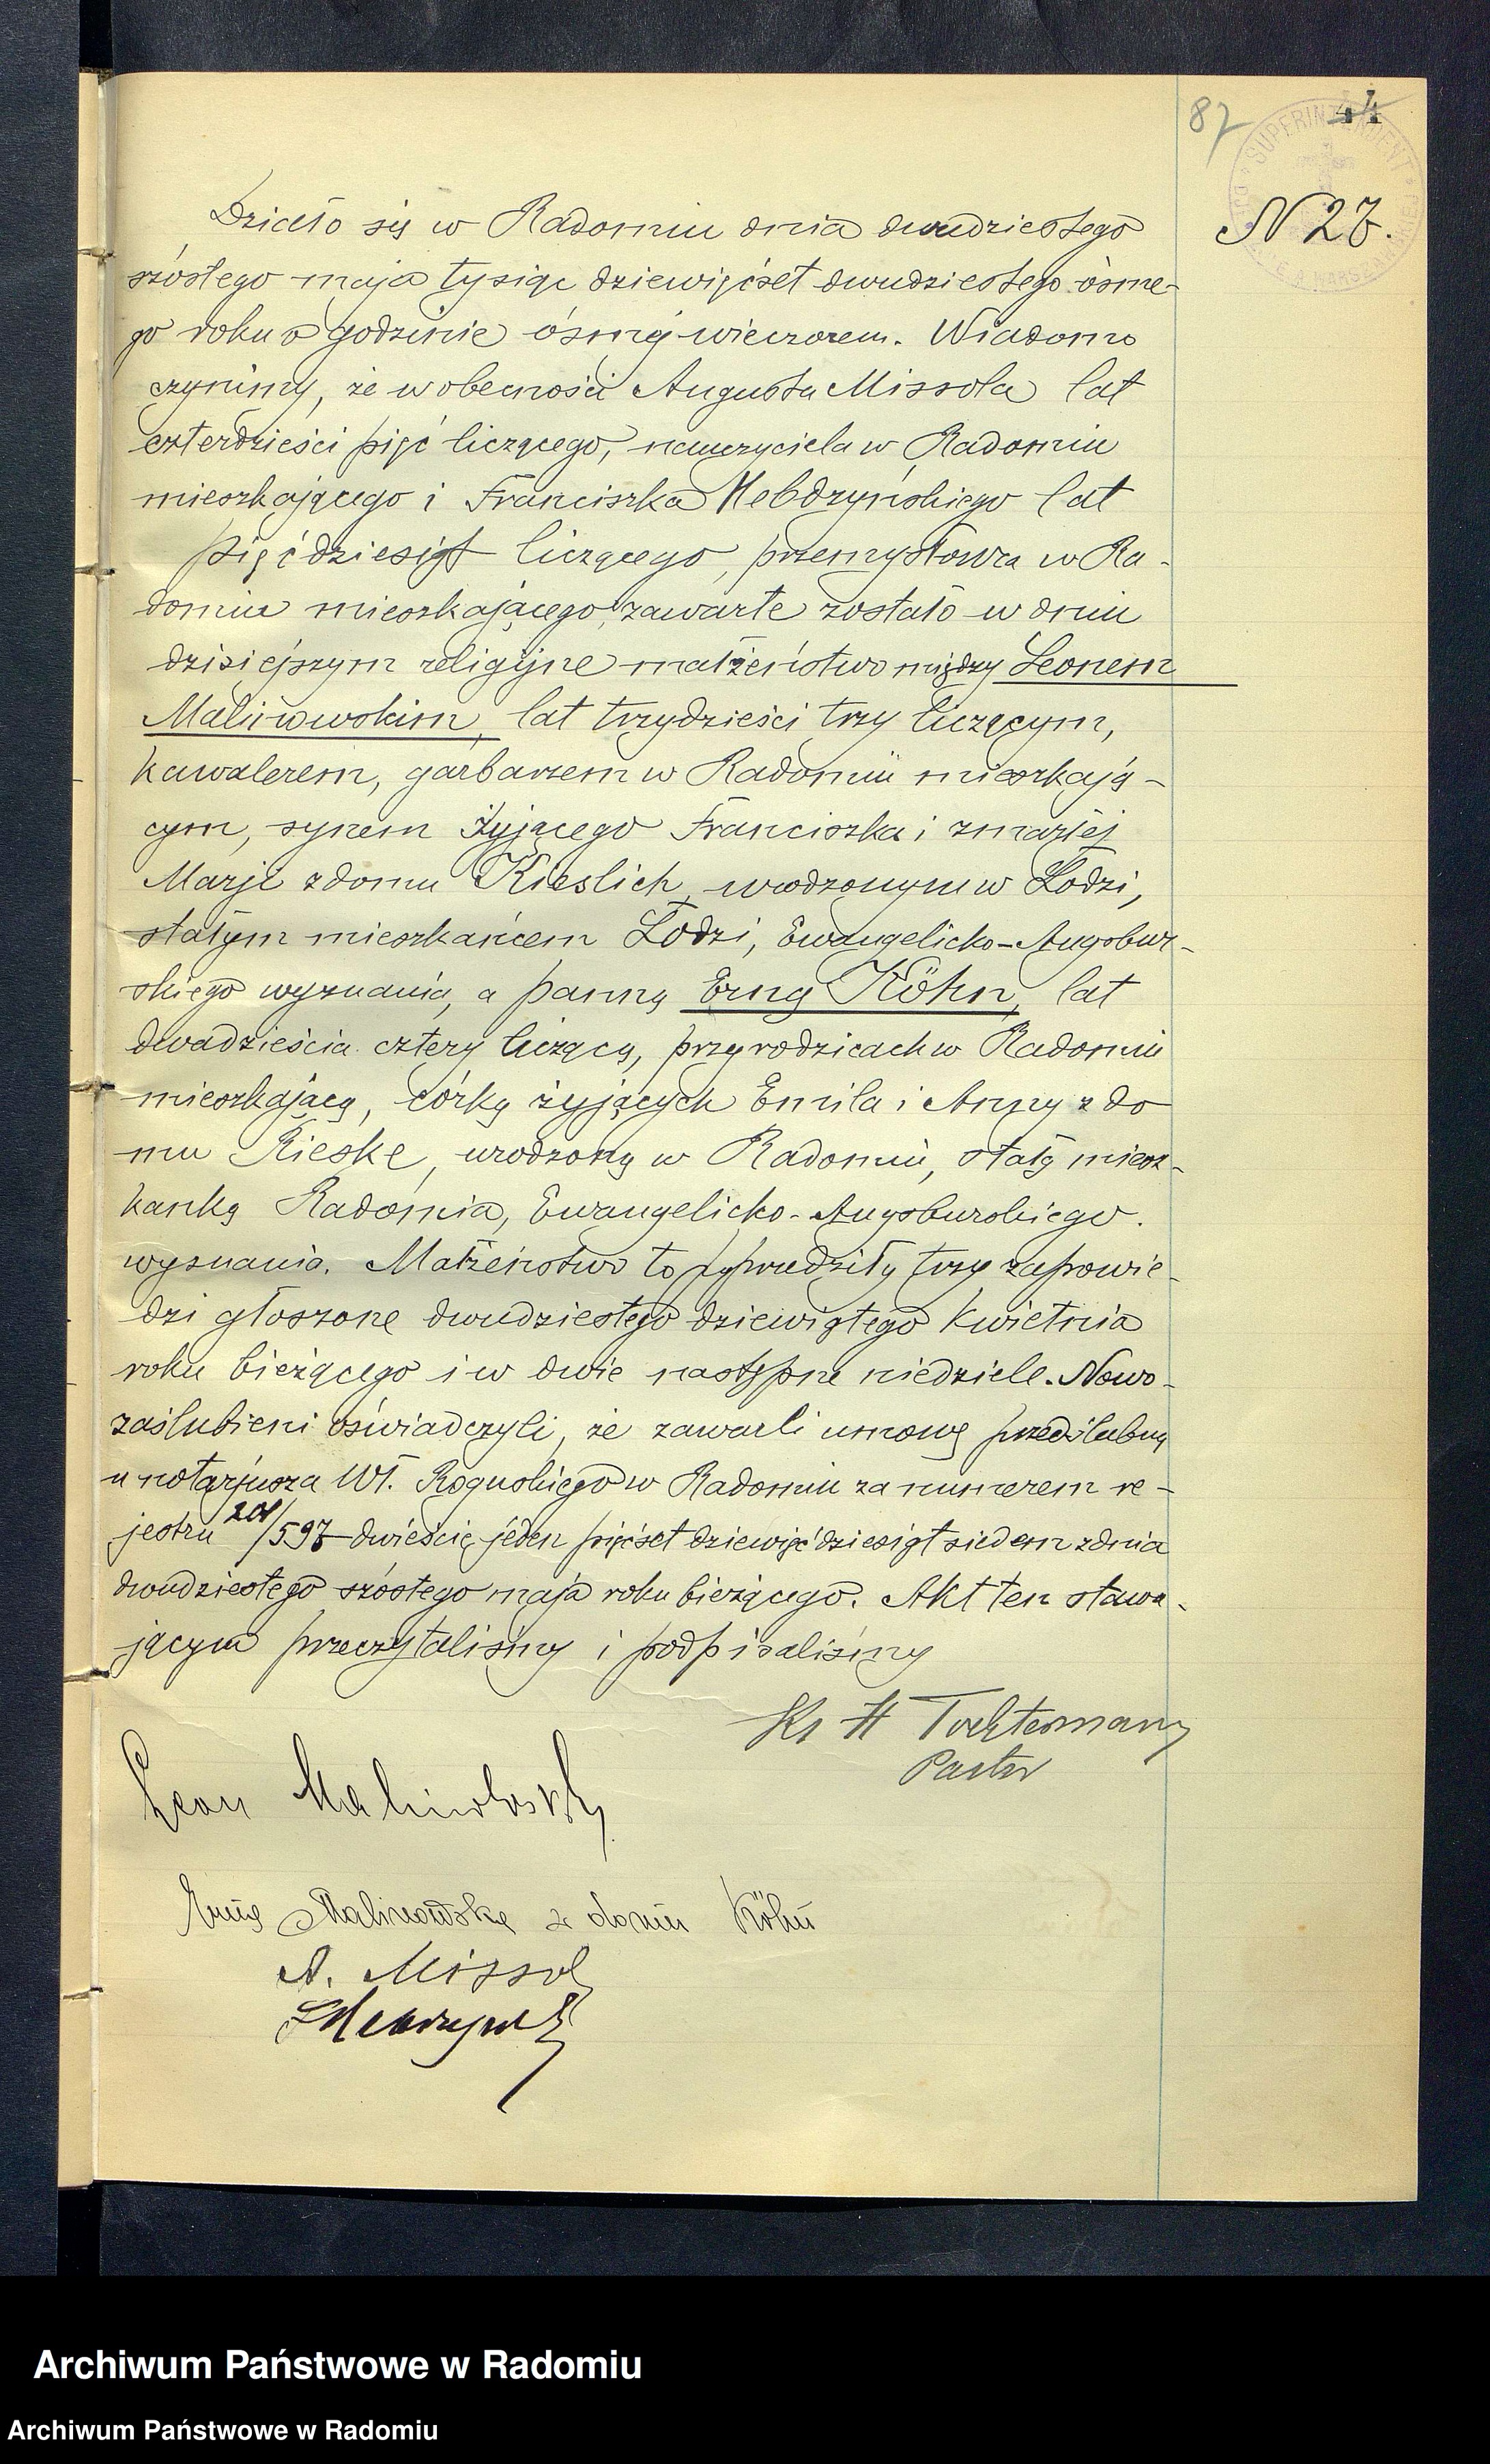 87
44
SUPERINTENDENT
N 27.
Działo się w Radomiu dnia dwudziestego
szóstego maja tysiąc dziewięćset dwudziestego ósme-
go roku o godzinie ósmej wieczorem. Wiadomo
czynimy, że w obecności Augusta Missola lat
czterdzieści pięć liczącego, nauczyciela w Radomiu
mieszkającego i Franciszka Hebdzyńskiego lat
pięćdziesiąt liczącego, przemysłowca w Ra-
domiu mieszkającego, zawarte zostało w dniu
dzisiejszym religijne małżeństwo między Leonem
Malinowskim, lat trzydzieści trzy liczącym,
kawalerem, garbarzem w Radomiu mieszkają-
cym, synem żyjącego Franciszka i zmarłej
Marji z domu Kieslich, urodzonym w Łodzi,
stałym mieszkańcem Łodzi, Ewangelicko-Augsbur-
skiego wyznania, a panną Erną Köhn, lat
dwadzieścia cztery liczącą, przy rodzicach w Radomiu
mieszkającą, córką żyjących Emila i Anny z do
mu Rieske, urodzoną w Radomiu, stałą miesz-
kanką Radomia, Ewangelicko-Augsburskiego.
wyznania. Małżeństwo to poprzedziły trzy zapowie-
dzi głoszone dwudziestego dziewiątego kwietnia
roku bieżącego i w dwie następne niedziele. Nowo-
zaślubieni oświadczyli, że zawarli umowę przedślubną
u notarjusza Wł. Roguskiego w Radomiu za numerem re-
jestru 201/597 dwieście jeden pięćset dziewięćdziesiąt siedem z dnia
dwudziestego szóstego maja roku bieżącego. Akt ten stawa-
jącym przeczytaliśmy i podpisaliśmy
Ks H Tochtermann
Pastor
Leon Malinowski
Erna Malinowska z domu Köhn
A. Missol
Archiwum Państwowe w Radomiu
Archiwum Państwowe w Radomiu